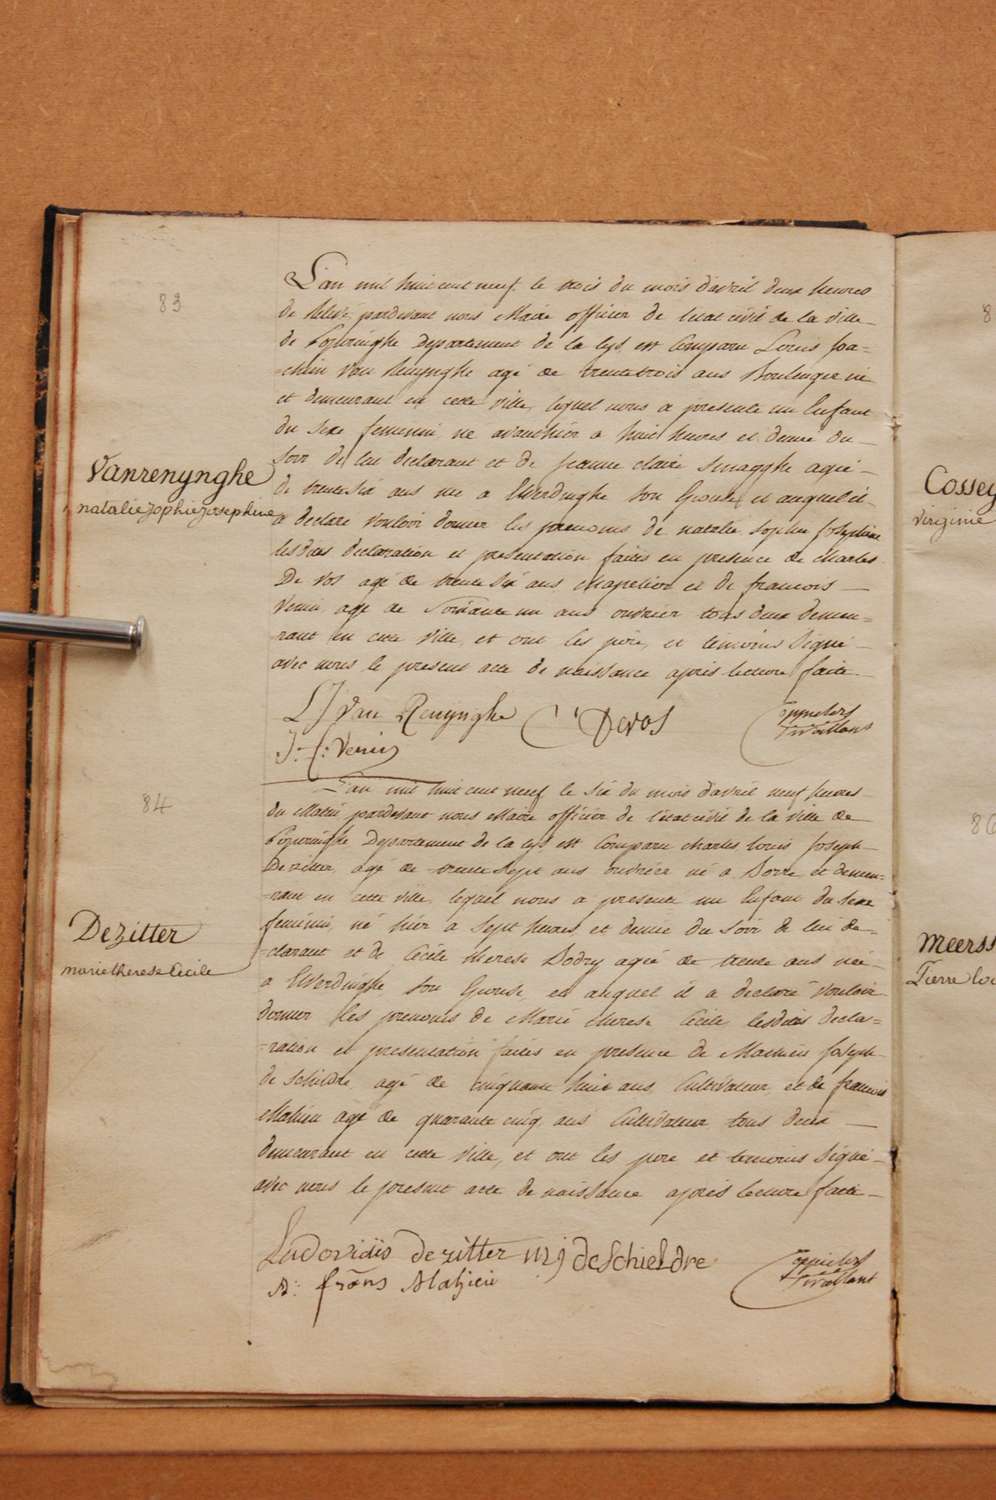 83
L'an mil huit cent neuf le trois du mois d'avril deux heures
de relevé pardevant nous Maire officier de l'etat civil de la ville
de Poperinghe departement de la Lys est comparu Louis Joa=
=chim Van Renynghe agé de trente trois ans Boulenger né
et demeurant en cette ville, lequel nous a presenté un Enfant
du sexe feminin né avanthier a huit heures et demie du
soir de lui declarant et de jeanne claire agée
Vanrenynghe
natalie zophie zosephine
de trente six ans née a Elverdinghe son Epouse, et auquel il
a declaré vouloir donner les prenoms de natalie Sophie Josephine
lesdites declaration et presentation faites en presence de Charles
De Vos agé de trente six ans et de francois
agé de soixante un ans ouvrier tous deux demeu=
=rant en cette ville, et ont les pere, et temoins signé
avec nous le present acte de naissance après lecture faite
L J Van Renynghe C Devos
84
L'an mil huit cent neuf le six du mois d'avril neuf heures
du Matin pardevant nous Maire officier de l'etat civil de la ville de
Poperinghe Departement de la Lys est comparu charles Louis Joseph
Dezitter, agé de trente sept ans ouvrier né a et demeu=
=rant en cette ville, lequel nous a presenté un Enfant du sexe
Dezitter
marie therese Cécile
feminin, né hier a sept heures et demie du soir de lui de=
=clarant et de Cécile therese agée de trente ans née
a Elverdinghe son Epouse, et auquel il a declaré vouloir
donner les prenoms de Marie therese Cécile lesdites decla=
=ration et presentation faites en presence de Mathieu Joseph
de Schieldre agé de cinquante huit ans, Cultivateur, et de francois
Mahieu agé de quarante cinq ans Cultivateur tous deux
demeurant en cette ville, et ont les pere et temoins signé
avec nous le present acte de naissance après lecture faite
Ludovicus dezitter m j deschieldre
frans Mahieu
8
Cossey
virginie
86
Meerss
Pierre lou